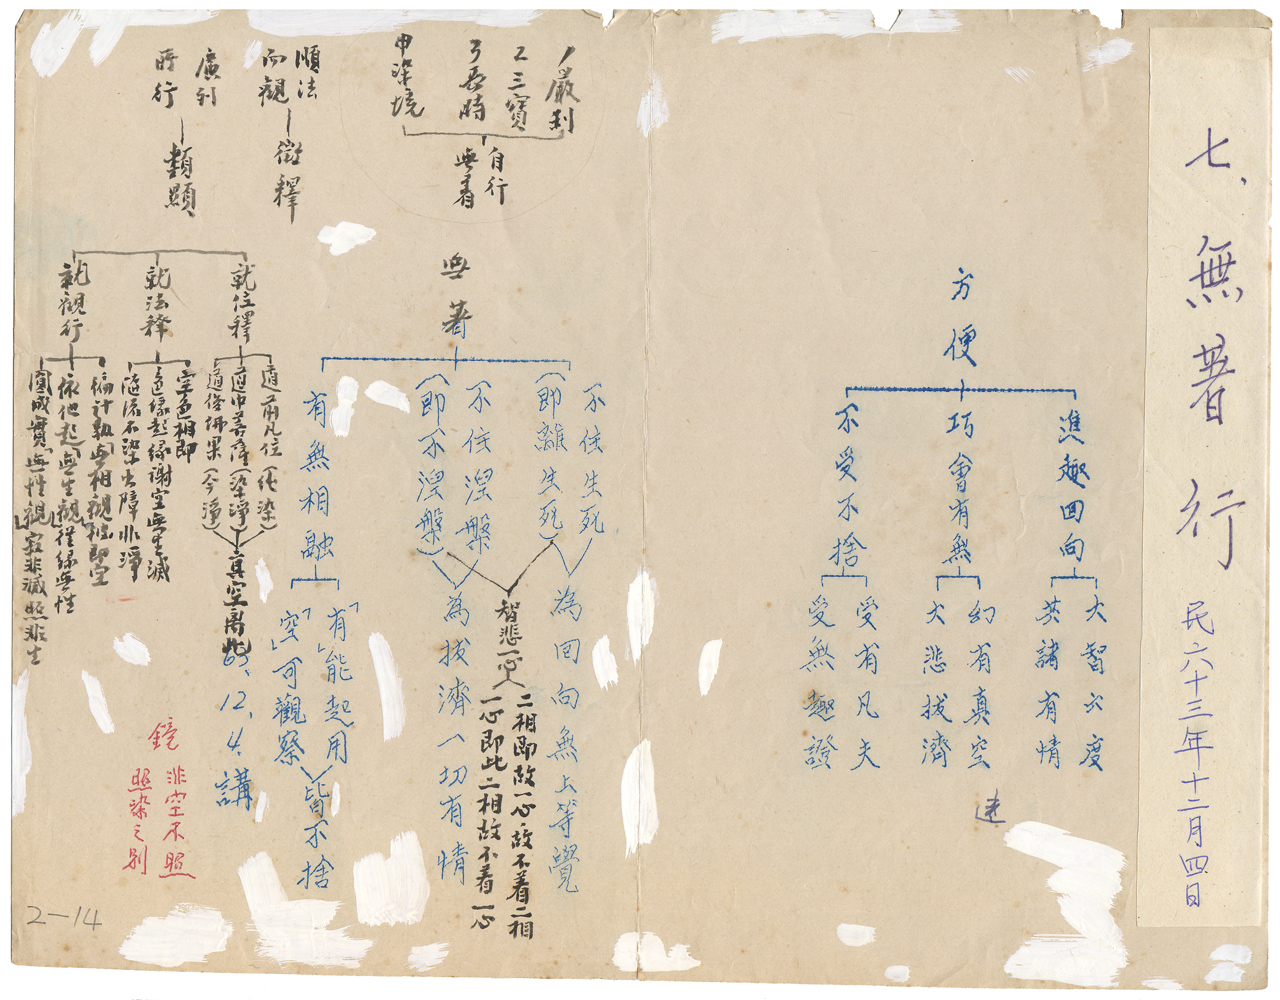 七、無著行
民六十三年十二月四日
方便
進趣回向
大智六度
英諸有情
巧會有無
幻有真空
大悲拔濟
不受不捨
受有凡夫
受無趣證
1嚴剎
2三寶
3長時
申染境
自行
無着
順法
而觀
徵釋
廣列
時行
類顯
無著
不住生死
(即離生死)
為回向無上等覺
不住涅槃
(即不涅槃)
為拔濟一切有情
智悲一心
二相即故一心故不着二相
一心即此二相故不着一心
有無相融
「有」能起用
「空」可觀察
皆不捨
63、12、4、講
就位釋
道前凡位(純染)
道中菩薩(染淨)
道後佛果(今淨)
真空离此
就法釋
空色相即
色緣起緣謝空無生滅
隨流不染出障非淨
就觀行
徧計執無相觀
依他起無生觀從緣無性
圓成實無性觀寂非滅照非生
鏡
非空不照
照染之別
2-14